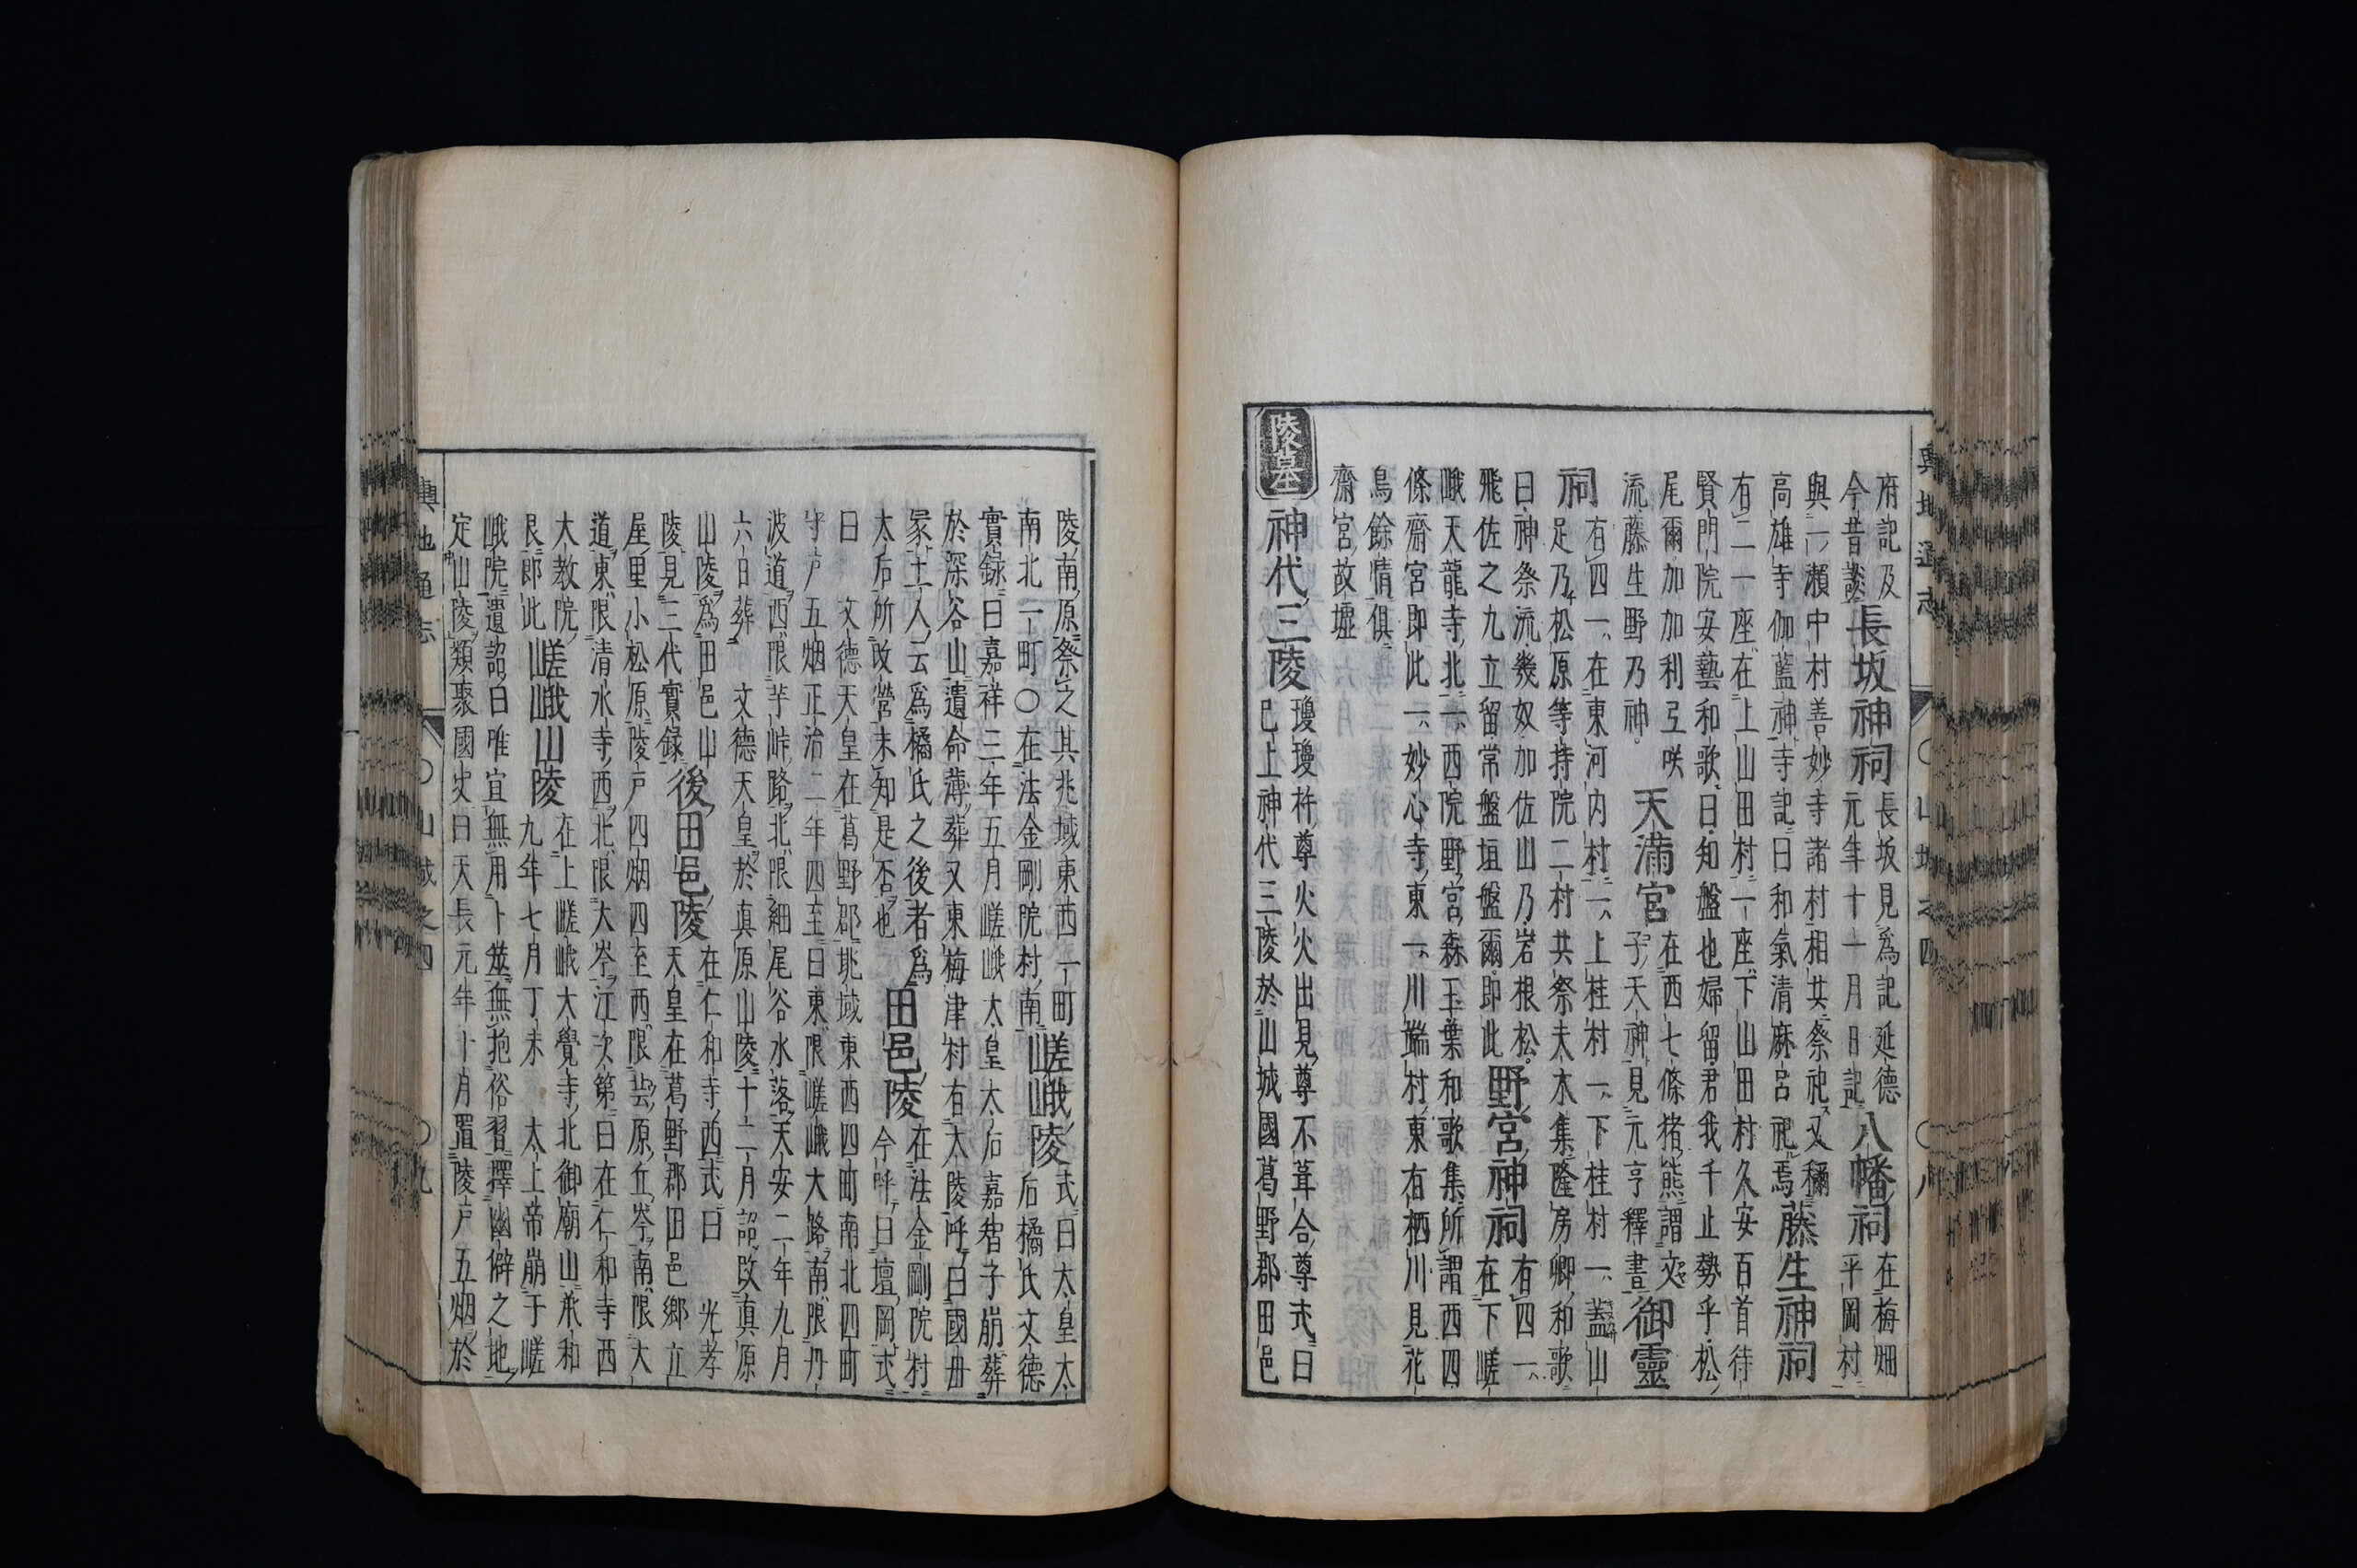 輿地通志 〇山城之四 〇八
府記及今昔談長坂神祠長坂見爲記延德元年十一月日記八幡祠在梅畑平岡村
與一瀬中村善妙寺諸村相共祭祀又稱
高雄寺伽藍神寺記曰和氣清麻呂祀焉藤生神祠
有二一座在上山田村一座下山田村久安百首待
賢門院安藝和歌曰知盤也婦留君我千止勢乎松
尾爾加加利弖咲流藤生野乃神天滿宮在西七條猪熊謂文子天神見元亨釋書御靈
祠有四一在東河内村一上桂村一下桂村一蓋山
足乃松原等持院二村共祭夫木集隆房卿和歌
曰神祭流幾奴加佐山乃岩根松飛佐之九立留常盤垣盤爾即此野宮神祠有四一在下嵯
峨天龍寺北一西院野宮森玉葉和歌集所謂西四
條齋宮即此一妙心寺東一川端村東有栖川見花
鳥餘情俱
齋宮故墟
陵墓 神代三陵瓊瓊杵尊火火出見尊不葺合尊式曰
已上神代三陵於山城國葛野郡田邑
陵南原祭之其兆域東西一町南北一町〇在法金剛院村南嵯峨陵式曰太皇太后橘氏文德
實録曰嘉祥三年五月嵯峨太皇太后嘉智子崩葬
於深谷山遺命薄葬又東梅津村有大陵呼曰國母
冢土人云爲橘氏之後者爲太后所改營未知是否也田邑陵在法金剛院村今呼曰壇岡式
曰文德天皇在葛野郡兆域東西四町南北四町
守戸五烟正治二年四至曰東限嵯峨大路南限丹
波道西限芋峠路北限細尾谷水落天安二年九月
六日葬文德天皇於真原山陵十二月詔改真原
山陵爲田邑山陵見三代實録後田邑陵在仁和寺西式曰光孝天皇在葛野郡田邑鄉立
屋里小松原陵戸四烟四至西限芸原丘岑南限大
道東限清水寺西北限大岑江次第曰在仁和寺西
大教院艮郎此嵯峨山陵在上嵯峨大覺寺北御廟山承和九年七月丁未太上帝崩于嵯
峨院遺詔曰唯宜無用卜筮無抱俗習擇幽僻之地
定山陵類聚國史曰天長元年十月置陵戸五烟於
輿地通志 〇山城之四 〇九